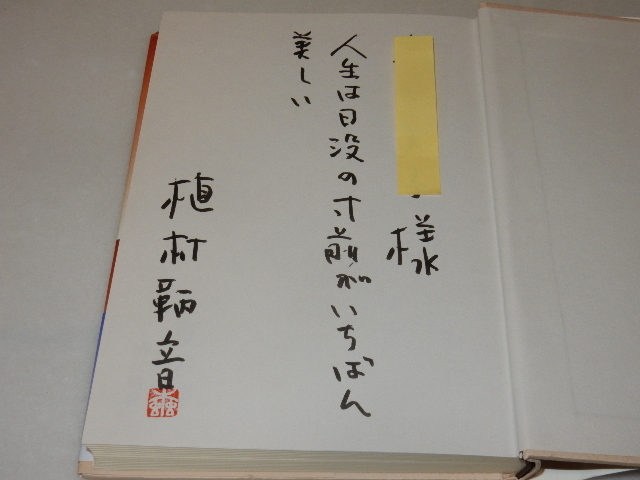 様
人生は日没の寸前がいちばん
美しい
植村鞆音